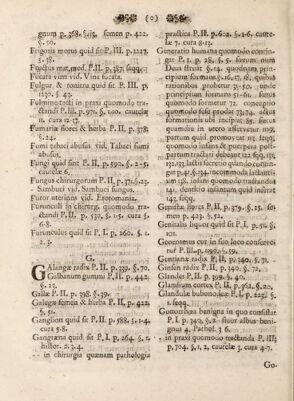 (o)
gnum p. 368. §. 15. semen p. 422.
§. 50.
Frigoris morus quid sit P. III. p. 1227.
§. 38.
Fructus mat. med. P. II. p. 387. seqq.
Fucata vini vid. Vina fucata.
Fulgur, & tonitru quid sit P. III. p.
§. 43.
Fulmine tacti in praxi quomodo tra-
ctandi P. III. p. 976. §. cautelæ
cura
Fumariæ flores & herba P. II. p. 378.
§. 24.
Fumi tabaci abusus vid. Tabaci fumi
abusus.
Fungi quid sint P. II. p. 590. §. 2-5.
cautelæ 6.
Fungus chirurgorum P. II. p. §. 23.
- Sambuci vid. Sambuci fungus.
Furor uterinus vid. Erotomania.
Furunculi in chirurg. quomodo tra-
ctandi P. II. p. 530. §. 1-5. cura §.
6-8.
Furunculus quid sit P. I. p. 260. §. 1.
2. 3.
G.
GAlangæ radix P. II. p. 339. §. 70.
Galbanum gummi P. II. p. 442.
§. 23.
Gallæ P. II. p. 398. §. 39.
Galegæ semen & herba P. II. p. 422.
§. 51.
Ganglion quid sit P. II. p. 588. §. 1-4.
cura 5-8.
Gangræna quid sit P. I. p. 264. §. 1.
histor. 2. 3. 4.
- in chirurgia quænam pathologia
practica P. II. p. 602. §. 1-6. caute-
læ 7. cura 8-12.
Generatio humana quomodo contin-
gat P. I. p. 28. §. 5. forum num
Deus struat §. 14. quodnam prin-
cipium formans §. 16. 17. 18. quibus
rationibus probetur §. 30. unde
principium formans §.
quomodo formetur 72. conceptio
quomodo sese prodat 73. 74. actus
formationis in sanguine fit 105.
quamdiu in utero asservetur 109.
partum quid promoveat 112. seqq.
quomodo infans & puerpera post-
partum tractari debeant 122. §. 130.
131. 132. §. 133. §. 134. §. 135. seqq.
quomodo infantes nutriendi §. 140.
141. dentitio infantum quid innuat
142. seqq.
Genistæ flores P. II. p. 379. §. 25. se-
men p. 423. §. 52.
Genitalis liquor quid sit P. I. p. 51. §.
70.
Geocosmus cur in suo loco conserve-
tur P. III. p. 1199. §. 59.
Gentianæ radix P. II. p. 340. §. 71.
Ginsen radix P. II. p. 340. §. 72.
Glandes P. II. p. 399. §. 40.
Glandium cortex p. 362. §. 20.
Glandulæ bubonoceæ P. I. p. 223. §.
1. seqq.
Gonorrhœa benigna in quo consistat
P. I. p. 340. §. 2. fluor albus beni-
gnus 4. Pathol. 3 6.
- in praxi quomodo tractanda P. III.
p. 704. §. 1. 2. cautelæ 3. cura 4-7.
Go-